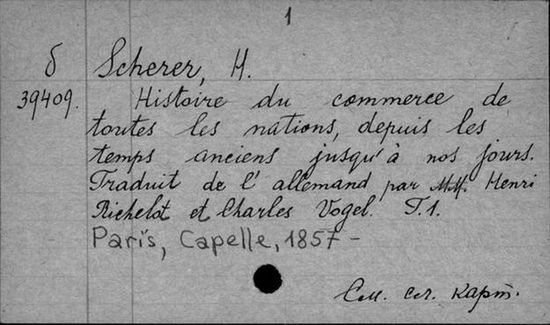 1
δ Scherer, H.
39409. Histoire du commerce de
toutes les nations, depuis les
temps anciens jusqu'à nos jours.
Traduit de l'allemand par MM. Henri
Richelot et Charles Vogel. T.1.
Paris, Capelle, 1857 -
См. сer. карт.